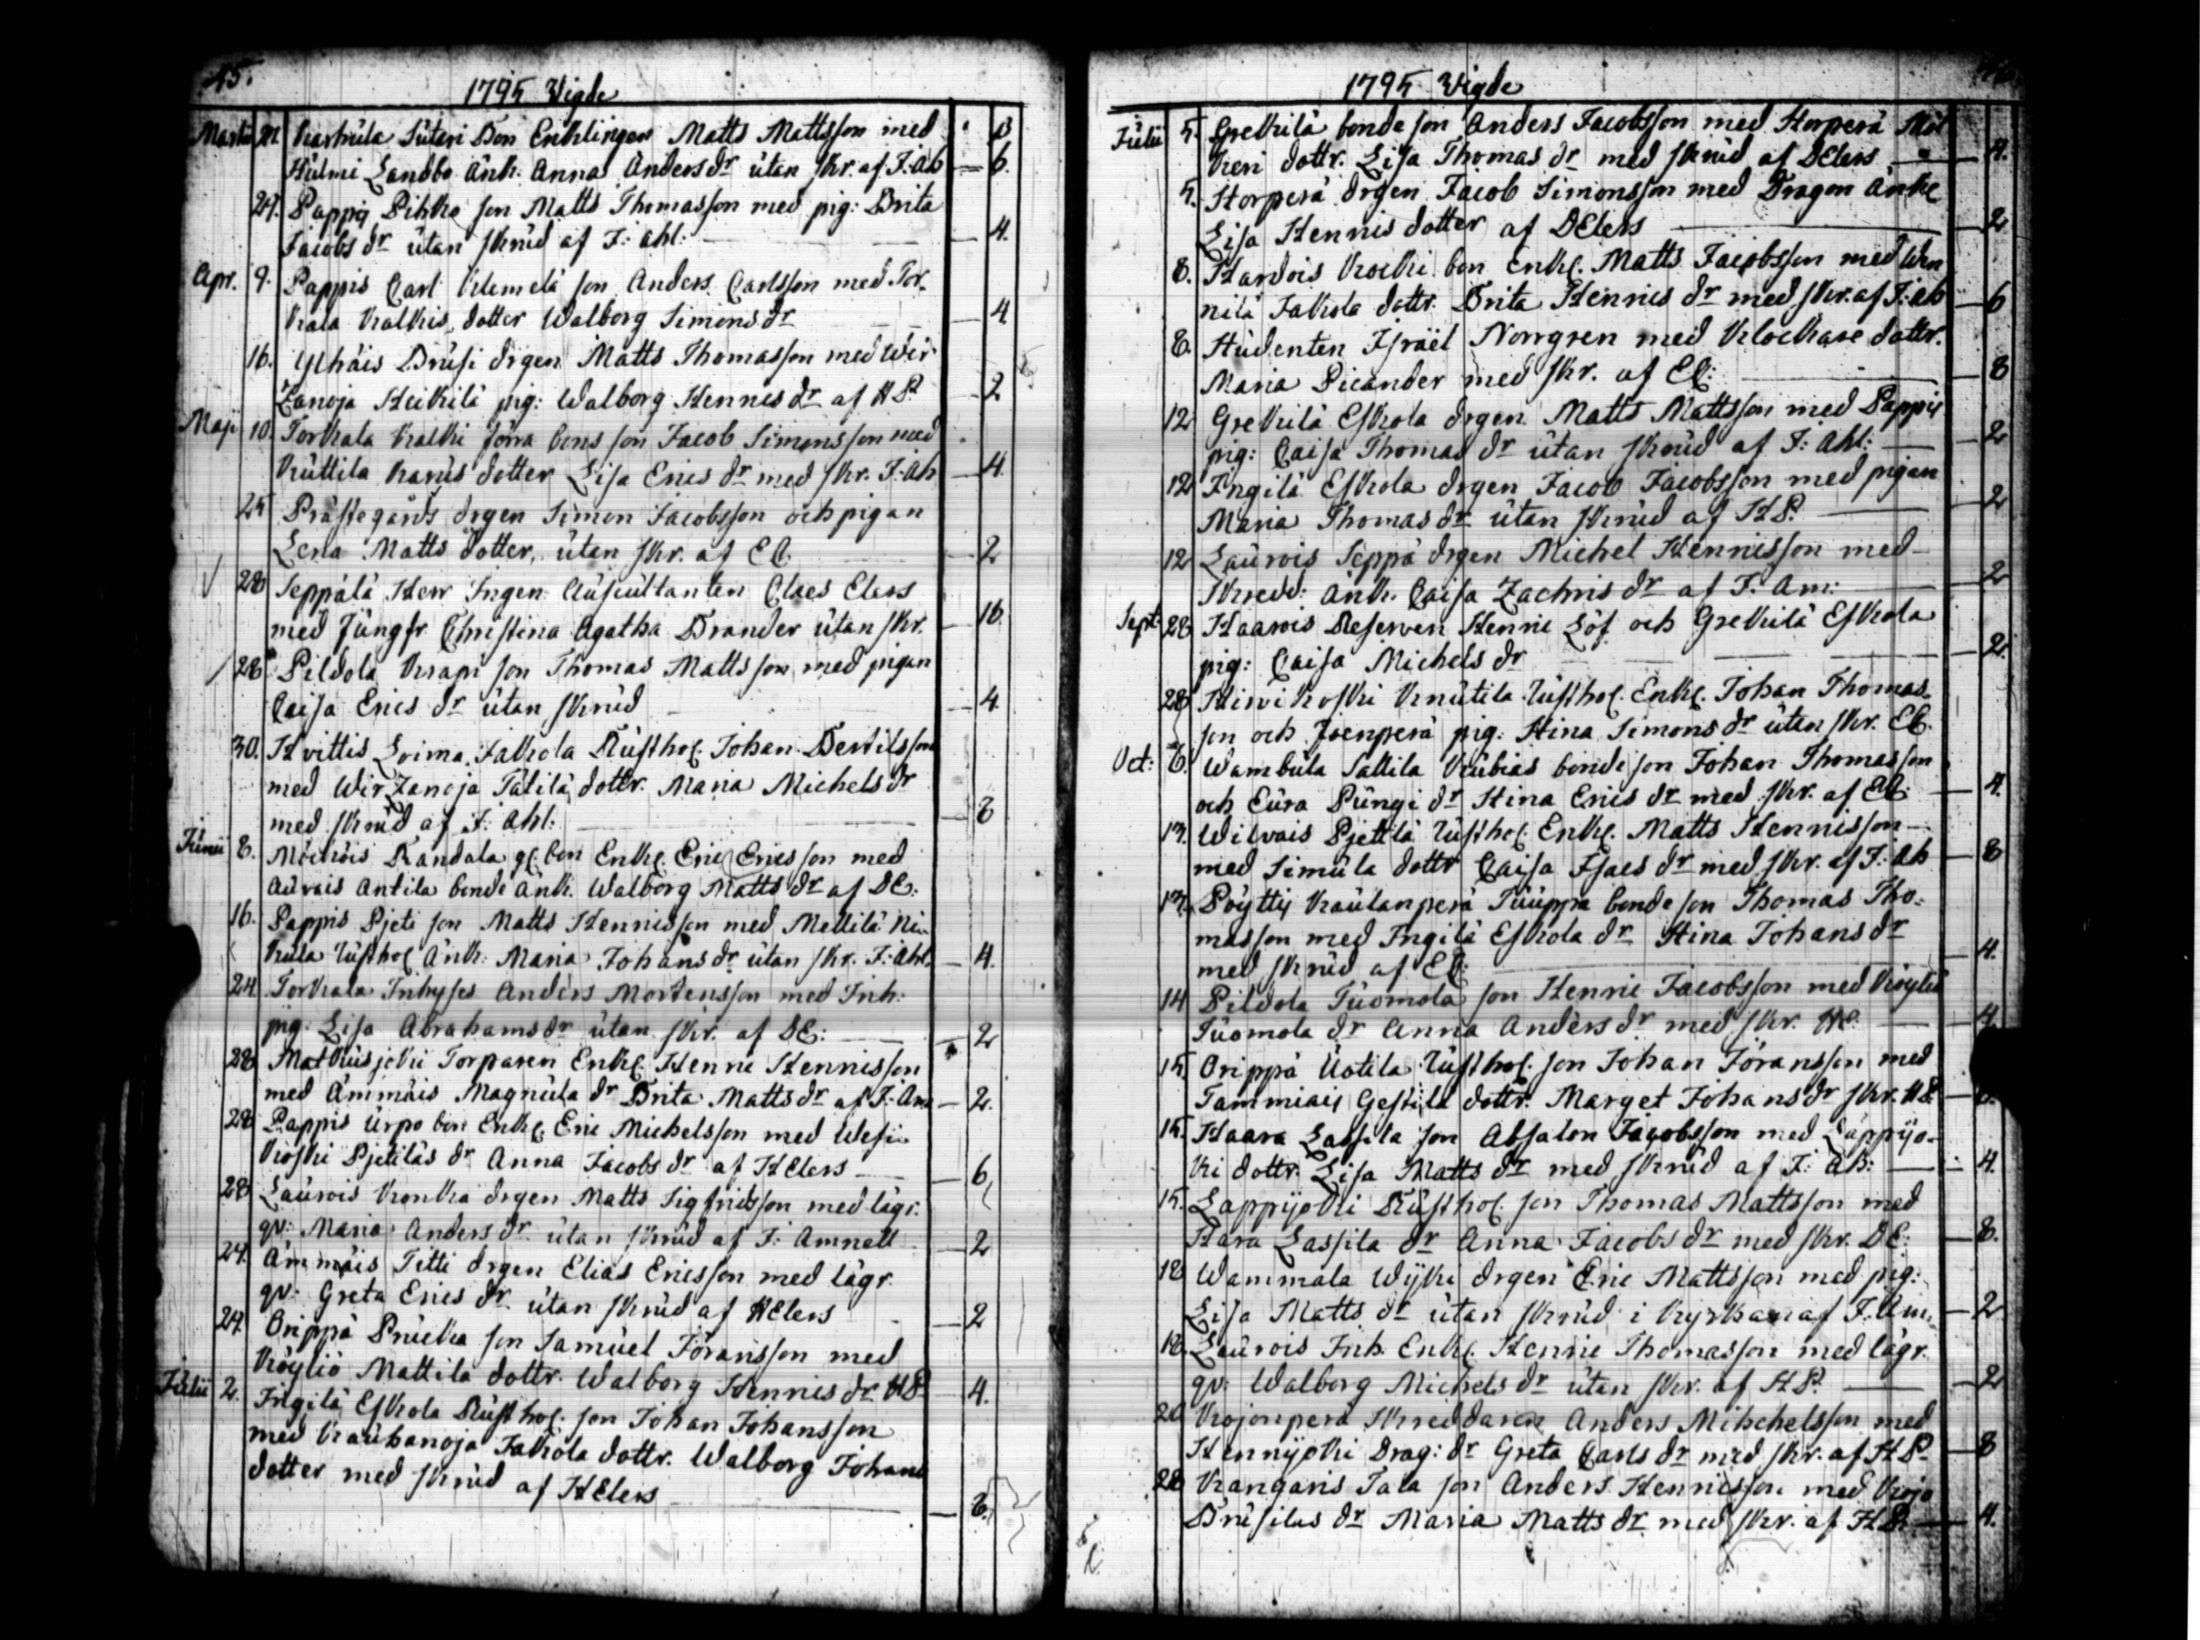 45.
1795 Vigde
Martii 22. Karhula Sutari Bon Enklingen Matts Mattsson med ß
Hulmi Landbo Änk. Anna Anders dr utan skr. af J: Ah 6.
27. Pappis Pihka son Matts Thomasson med pig: Brita
Jacobs dr utan skrud af J: Ahl: 4.
Apr. 9. Pappis Carl Klemelä son Anders Carlsson med Tor-
kala Kalkis dotter Walborg Simons dr 4
16. Ylhäis Brusi drgen Matts Thomasson med Wir-
zanoja Heikilä pig: Walborg Hennes dr af HP. 2
Maji 10. Torkala Kalki förra bons son Jacob Simonsson med
Kuttila Karus dotter Lisa Erics dr med skr. J: Ah 4.
25 Prästegårds drgen Simon Jacobsson och pigan
Lena Matts dotter, utan skr. af EC. 2
28 Seppälä Herr Ingen Auscultanten Claes Elers
med Jungfr Christina Agatha Brander utan skr. 16
28 Pildola Krapi son Thomas Mattsson med pigan
Caisa Erics dr utan skrud 4
30. Hvittis Loima Jakola Rusthol. Johan Bertilsson
med Wirzanoja Tälilä dottr. Maria Michels dr
med skrud af J: Ahl: 8
Junii 8. Mäenkois Randala gl. bon Enkl. Eric Ericsson med
Auvais Antila bonde änk. Walborg Matts dr af DE:
16. Pappis Pjeti son Matts Hennisson med Mellilä Ni-
kula Rusthol Änk: Maria Johans dr utan skr. J: Ahl. 4.
24 Torkala Inhyses Anders Mortensson med Inh:
pig: Lisa Abrahams dr utan skr. af DE: 2
28 Matkusjoki Torparen Enkl. Henric Hennisson
med Ämmäis Magnula dr Brita Matts dr af J: Am 2.
28 Pappis Urpo bon Enkl. Eric Michelsson med Wesi-
koski Pjetiläs dr Anna Jacobs dr af H Elers 6
28 Laurois Konka drgen Matts Sigfridsson med lägr.
qv: Maria Anders dr utan skrud af J: Amnell 2
24. Ämmäis Titti drgen Elias Ericsson med lägr.
qv: Greta Erics dr utan skrud af H Elers 2
24. Orippä Prucka son Samuel Jöransson med
Köyliö Mattila dottr. Walborg Hennis dr HP 4.
Julii 2. Ingilä Eskola Rusthol. son Johan Johansson
med Kauhanoja Jakola dottr. Walborg Johans
dotter med skrud af H Elers 8.
1795 Vigde
Julii 5. Grekilä bonde son Anders Jacobsson med Horperä Möl
keri dottr. Lisa Thomas dr med skrud af D Elers 4.
5. Horperä drgen Jacob Simonsson med Dragon Änke
Lisa Hennis dotter af D Elers 2
8. Harvois Kocki bon Enkl. Matts Jacobsson med Wen
nilä Jakola dottr. Brita Hennis dr med skr. af J: Ah 6
8. Studenten Israël Norrgren med Klockare dottr.
Maria Picander med skr. af EC: 8
12 Grekilä Eskola drgen Matts Mattsson med Pappis
pig: Caisa Thomas dr utan skrud af J: Ahl: 2
12 Ingilä Eskola drgen Jacob Jacobsson med pigan
Maria Thomas dr utan skrud af HP. 2
12 Laurois Seppä drgen Michel Hennisson med
Skredd: Änk. Caisa Zachris dr af J: Am: 2
Sept. 28 Haarois Reserven Henric Löf och Grekilä Eskola
pig: Caisa Michels dr 2.
28 Hiwikoski Knutila Rusthol. Enkl. Johan Thomas-
son och Joenperä pig. Stina Simons dr utan skr. EC.
Oct: 6. Wambula Sallila Kubias bonde son Johan Thomasson
och Eura Pungi dr Stina Erics dr med skr. af EC. 4.
13. Wilvais Pjettilä Rusthol Enkl. Matts Hennisson
med Simula dottr Caisa Isacs dr med skr. af J: Ah 8
13. Pöyttis Kaulanperä Tuuppa bonde son Thomas Tho-
masson med Ingilä Eskola dr Stina Johans dr
med skrud af EC: 4.
14 Pildola Tuomola son Henric Jacobsson med Köyliö
Tuomola dr Anna Anders dr med skr. HP. 4
15. Orippä Uotila Rusthol. son Johan Jöransson med
Tammiais Gestilä dottr. Marget Johans dr skr. HE
15. Haara Lassila son Absalon Jacobsson med Lappijo-
ki dottr. Lisa Matts dr med skrud af J: Ah: 4.
15. Lappijoki Rusthol. son Thomas Mattsson med
Hara Lassila dr Anna Jacobs dr med skr. DE: 8.
18 Wammala Wijki drgen Eric Mattsson med pig:
Lisa Matts dr utan skrud i Kyrkan af J: Am: 2
18. Laurois Inh. Enkl. Henric Thomasson med lägr.
qv: Walborg Michels dr utan skr. af HP. 2
20 Kojonperä Skreddaren Anders Mihchelsson med
Hennijoki Drag: dr Greta Carls dr med skr. af HP 8
28 Kangaris Tala son Anders Hennisson med Kojo
Brusilas dr Maria Matts dr med skr. af HP. 4.